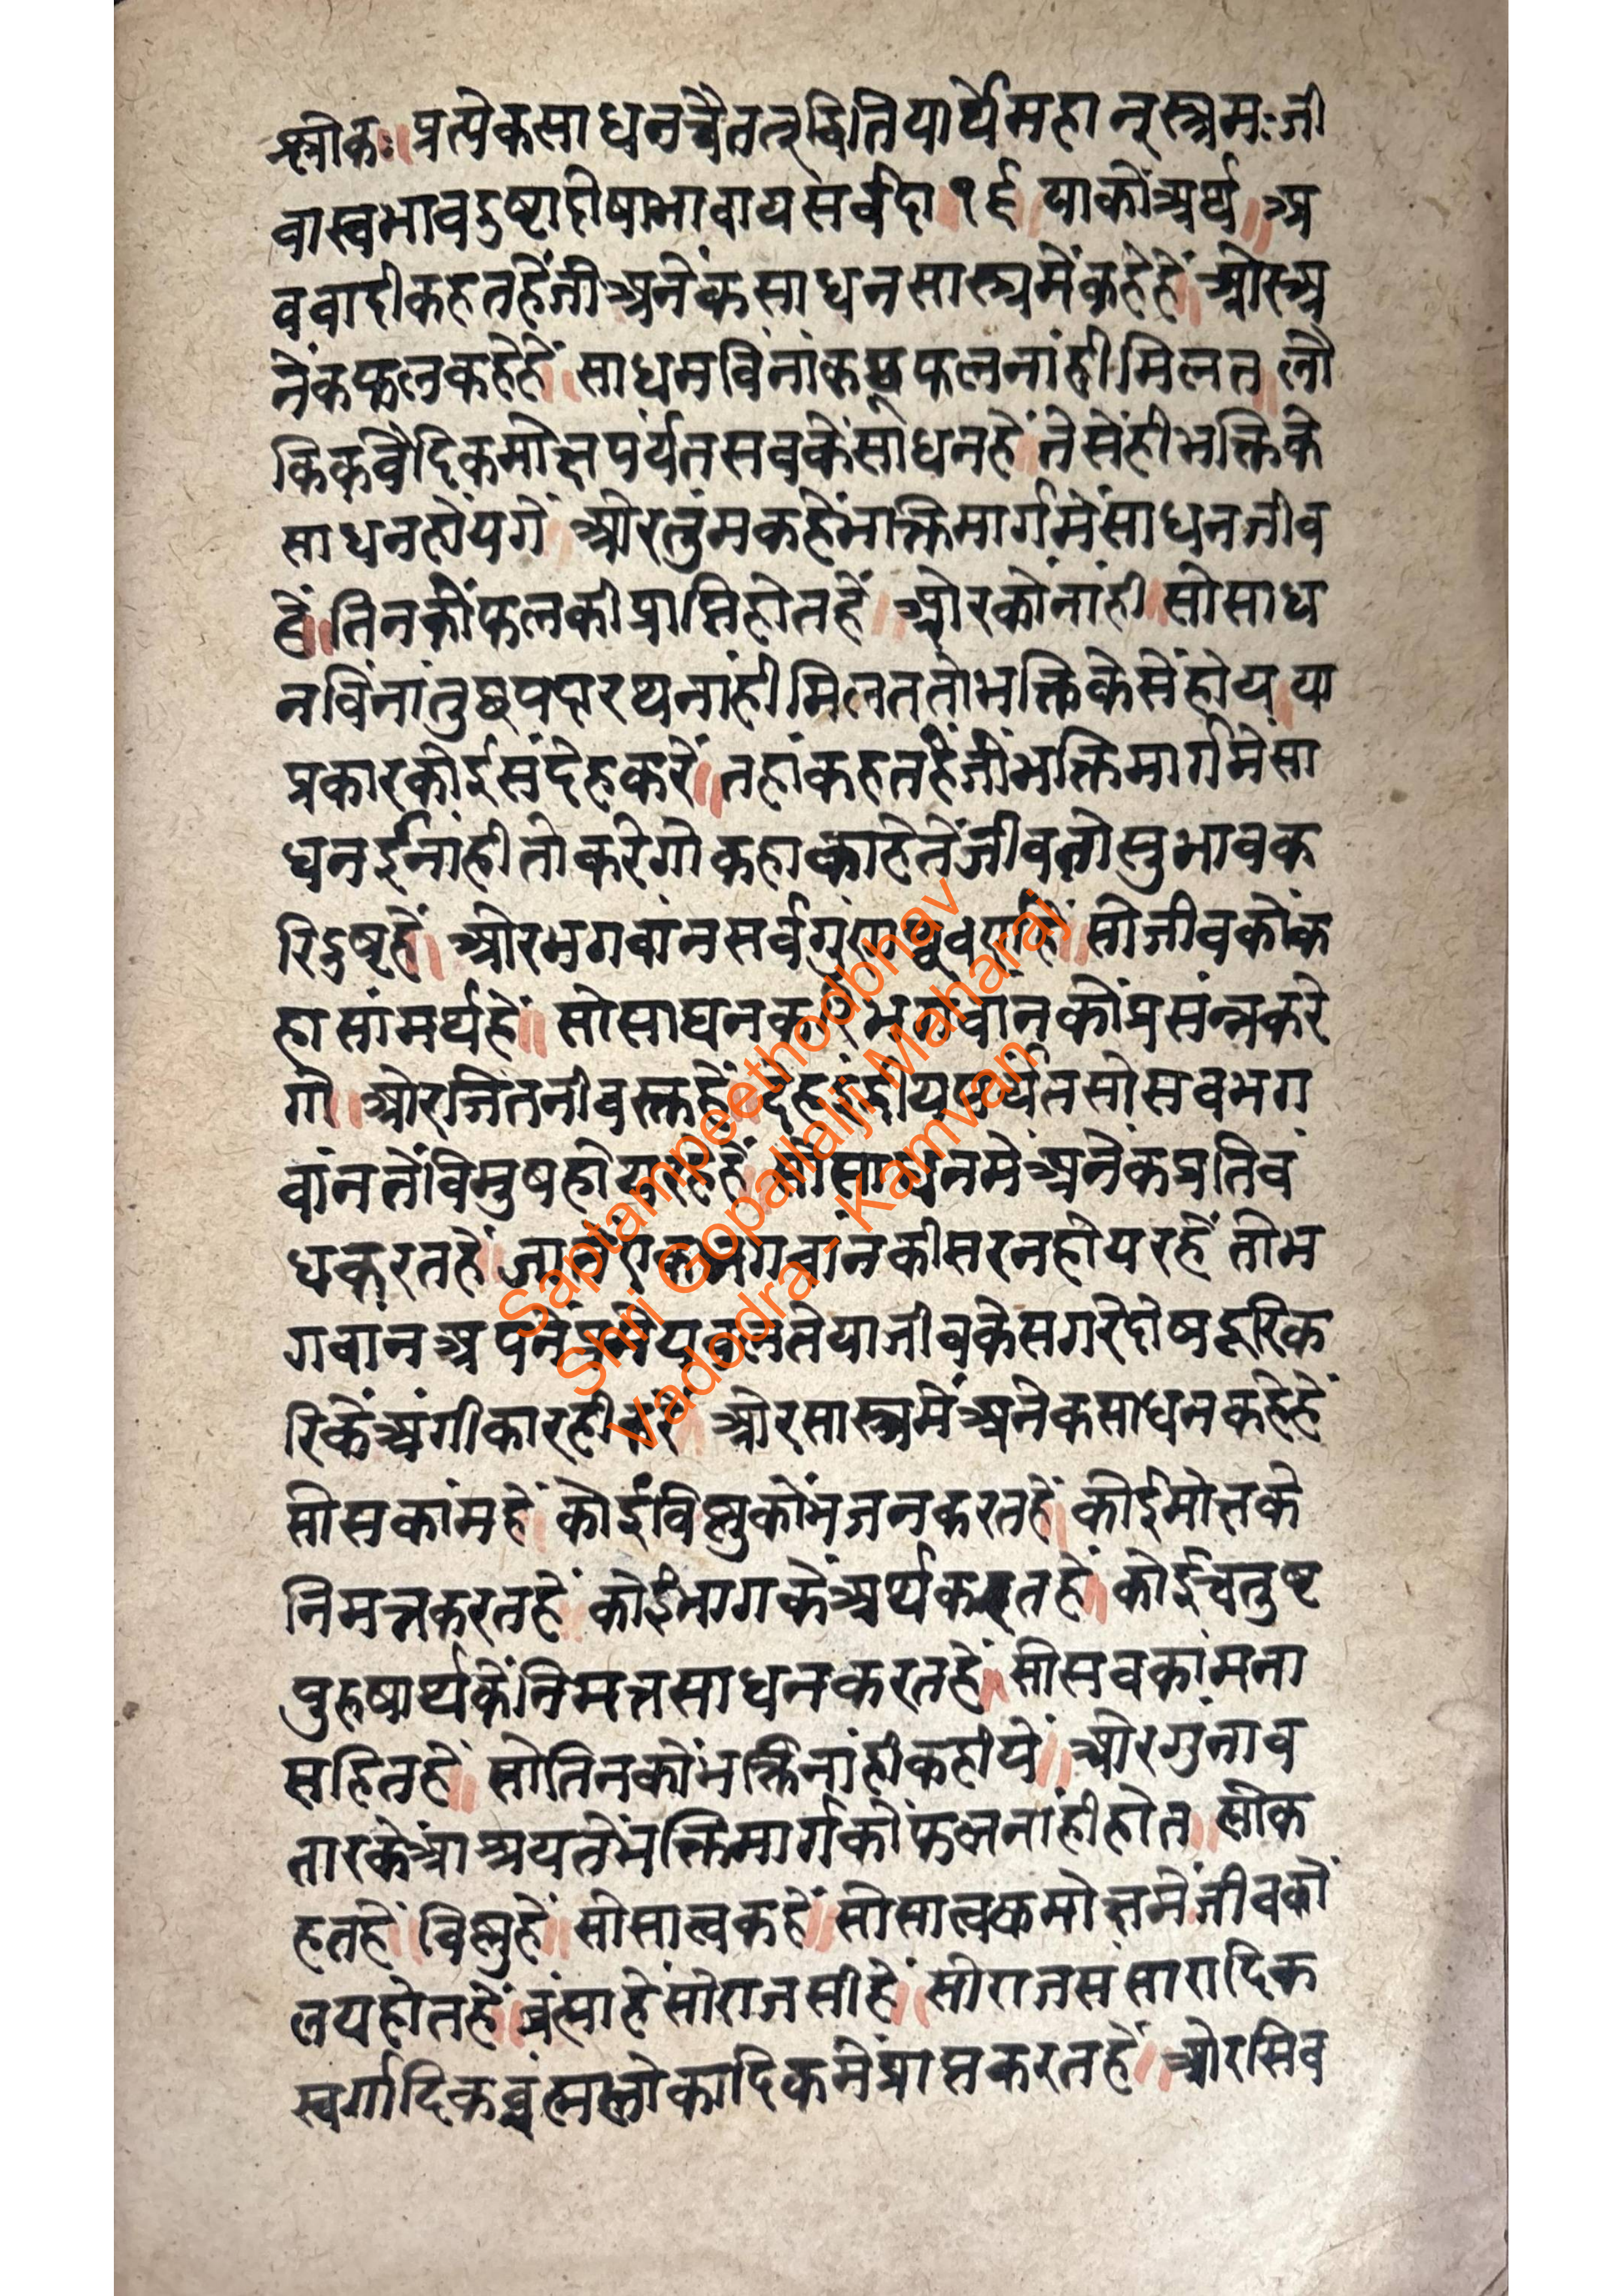 श्लोकः॥ प्रत्येकसाधनचैतत्द्वितियार्थेमहान्स्त्रमःजी
वास्वभावदुष्टादोषाभावायसर्वदा १६ याकोंअर्थ॥ अ
ववादीकहतहेंजीअनेंकसाधनसास्त्रमेंकहेहें॥ ओरअ
नेंकफलकहेहें॥ साधनविनांकछूफलनांहीमिलत॥ लौ
किकवैदिकमोक्षपर्यंतसवकेंसाधनहें॥ तेसेंहीभक्तिके
साधनहोंयगें॥ ओरतुंमकहेंभक्तिमार्गमेंसाधनजीव
हें॥ तिनकोंफलकीप्राप्तिहोतहें॥ ओरकोंनांही॥ सोसाध
नविनांतुछपदारथनांहीमिलततोभक्तिकेसेंहोय॥ या
प्रकारकोईसंदेहकरें॥ तहांकहतहेंजोंभक्तिमार्गमेसा
धनईनांहीतोकरेगोकहाकाहेतेंजीवतोसुभावक
रिदुष्टहें॥ ओरभगवांनसर्वगुणपूवर्णहें॥ सोजीवकोंक
हासांमर्थहें॥ सोसाधनकरिभगवांनकोंप्रसंन्नकरे
गो॥ ओरजितनीवस्तहें॥ देहइंद्रीयपर्यंतसोसवभग
वांनतेंविमुषहोयरहेहें॥ सोसाधनमेंअनेकप्रतिवं
धकरतहें॥ जातेंएकभगवांनकीसरनहोयरहें॥ तोभ
गवांनअपनेंप्रमेयवलतेयाजीवकेसगरेदोषदूरिक
रिकेंअंगीकारहीकरें॥ ओरसास्त्रमेंअनेकसाधनकहेहें
सोसकांमहें॥ कोईविष्णुकोंभजनकरतहें॥ कोईमोक्षके
निमत्तकरतहें॥ कोईभोगकेंअर्थकरतहें॥ कोईचतुष्ट
पुरुषार्थकेंनिमत्तसाधनकरतहें॥ सोसवकांमना
सहितहें॥ सोतिनकोंभक्तिनांहीकहीये॥ ओरगुंनाव
तारकेआश्रयतेंभक्तिमार्गकोंफलनांहीहोत॥ लोक
हतहें॥ विष्णुहें॥ सोसात्वकहें॥ सोसात्वकमोक्षमेंजीवकों
लयहोतहें॥ व्रंह्माहेंसोराजसीहें॥ सोराजससारादिक
स्वर्गादिकव्रंह्मलोकादिकमेंप्राप्तकरतहें॥ ओरसिव
Saptampeethodbhav
Shri Gopallalji Maharaj
Vadodra - Kamvan